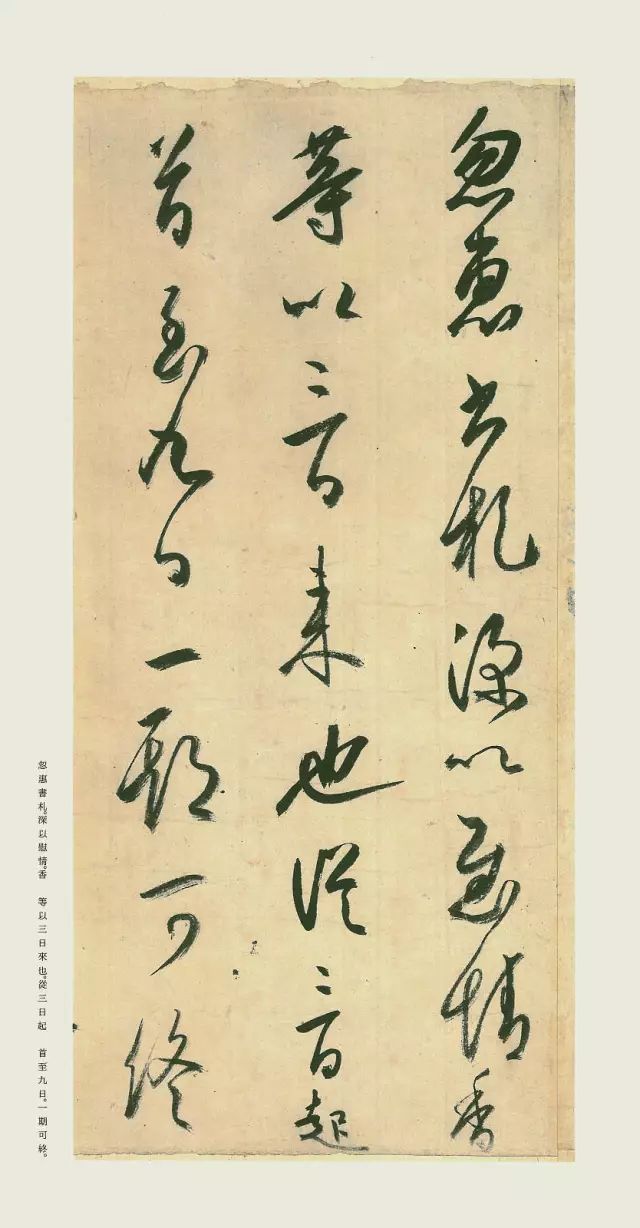 忽惠書札深以慰情香
等以三日來也從三日起
首至九日一期可終
忽惠書札。深以慰情。香　等以三日來也。從三日起　首至九日。一期可終。